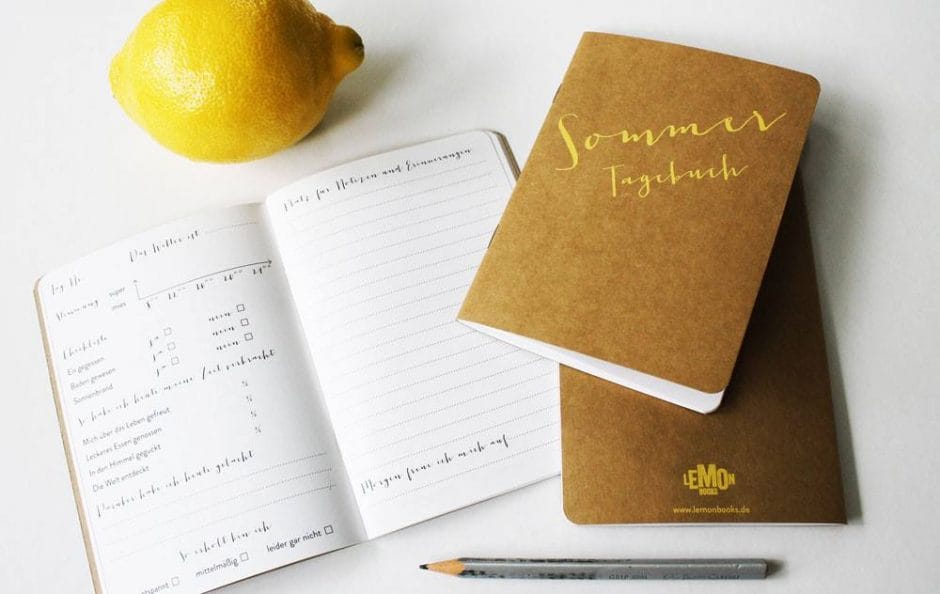 Tag Nr. Das Wetter ist
Stimmung super
mies
8⁰⁰ 12⁰⁰ 16⁰⁰ 20⁰⁰ 24⁰⁰
Checkliste
Eis gegessen ja nein
Baden gewesen ja nein
Sonnenbrand ja nein
So habe ich heute meine Zeit verbracht
Mich über das Leben gefreut %
Leckeres Essen genossen %
In den Himmel geguckt %
Die Welt entdeckt
Darüber habe ich heute gelacht
So erholt bin ich
entspannt mittelmäßig leider gar nicht
Platz für Notizen und Erinnerungen
Morgen freue ich mich auf
Sommer
Tagebuch
LEMON
BOOKS
www.lemonbooks.de